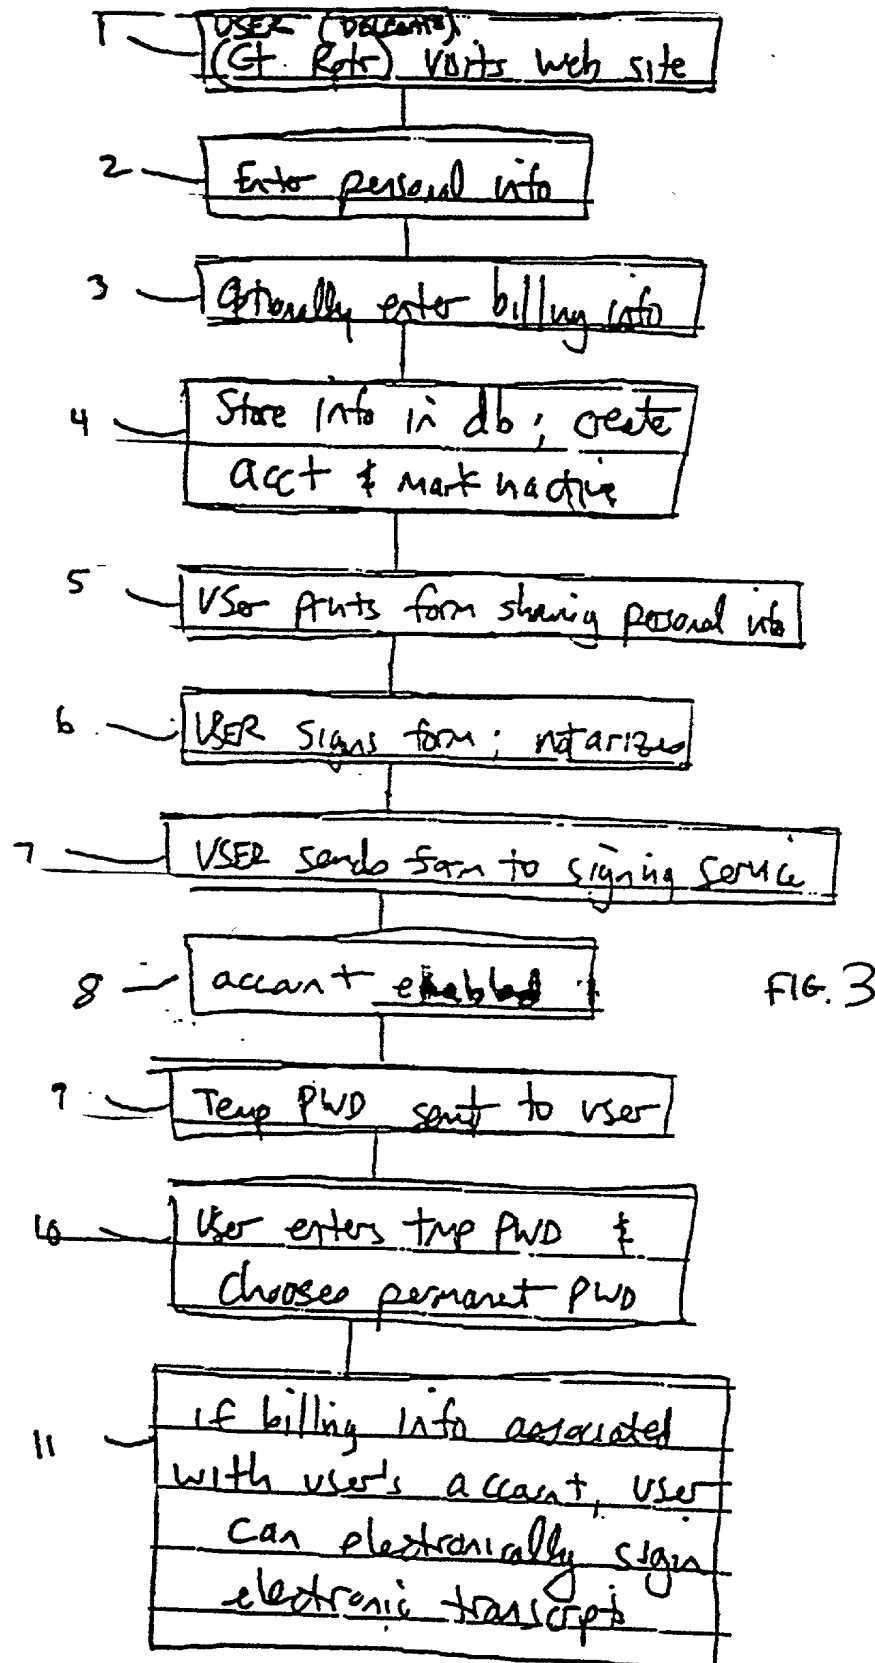 1
USER
(Ct. Rptr) visits web site
2
Enter personal info
3
Optionally enter billing info
4
Store info in db; create
acct & mark inactive
5
User prints form sharing personal info
6
USER signs form; notarizes
7
USER sends form to signing service
8
account enabled
FIG. 3
9
Temp PWD sent to user
10
User enters tmp PWD &
chooses permanet PWD
11
if billing info associated
with user's account, user
can electronically sign
electronic transcripts